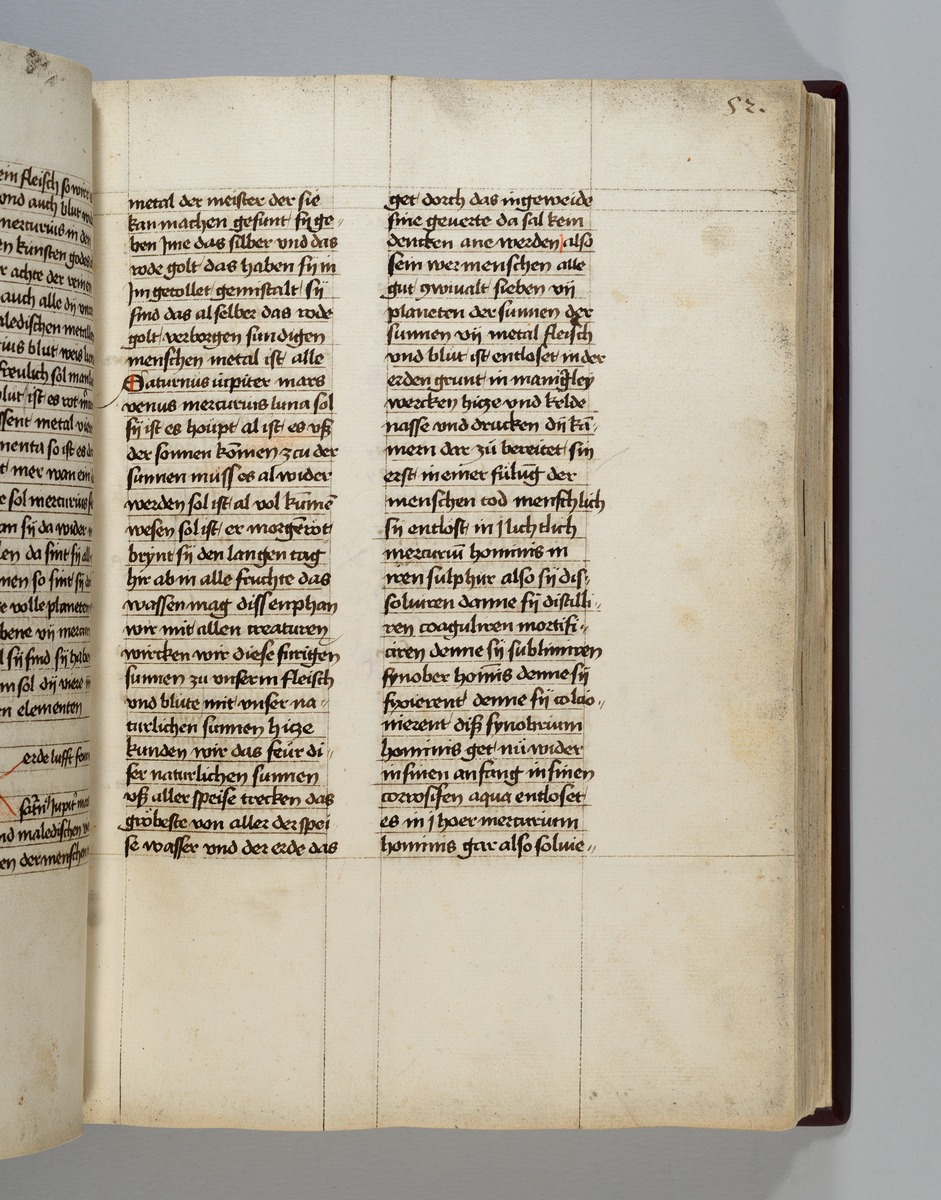 52.
ein fleisch so
vnd auch blut
mercurius in den
en kunsten
r achte der
auch alle dij
maledischen
blut
sol man
blut ist es rot
ssent metal
menta so ist es
t mer wan
e sol mercurius
an sij da wider
len da sint sij
men so sint sij
e volle planeten
bene vij
l sij sind sij
m sol dij viere
n elementen
erde lufft
nd maledischen
en der menschen
metal der meister der sie
kan machen gesunt sij ge-
ben jme das silber vnd das
rode golt das haben sij in
sind das al selber das rode
golt verborgen sundigen
menschen metal ist alle
Saturnus iupiter mars
venus mercurius luna sol
sij ist es houpt al ist es vß
der sonnen komen zcu der
sunnen muss es al wider
werden sol ist al vol
wesen sol ist er morgerot
brynt sij den langen tag
hir ab in alle fruchte das
wassen mag diss enphan
wir mit allen creaturen
wircken wir diese furigen
sunnen zu vnserm fleisch
vnd blute mit vnser na-
turlichen sunnen hicze
kunden wir das feur di-
ser naturlichen sunnen
vß aller speise trecken das
gröbeste von aller der spei
se wasser vnd der erde das
get dorch das ingeweide
sine geuerte da sal kein
dencken ane werden also
sein wer menschen alle
gut sieben vij
planeten der sunnen der
sunnen vij metal fleisch
vnd blut ist entloset in der
erden grunt in manigley
wercken hicze vnd kelde
nasse vnd drucken dij ka-
mern dar zu bereitet sin
erst in einer fulung der
menschen tod menschlich
sij entlost in
mercurium hominis in
iren sulphur also sij dis-
soluiren danne sij distilli-
ren coaguliren mortifi-
ciren denne sij sublimiren
synober hominis denne sij
fyxierent denne sij
nierent diß synobrium
hominis get nu wider
in sinen anfang in sinen
corrosifen aqua entloset
es in mercurium
hominis gar also soluie-